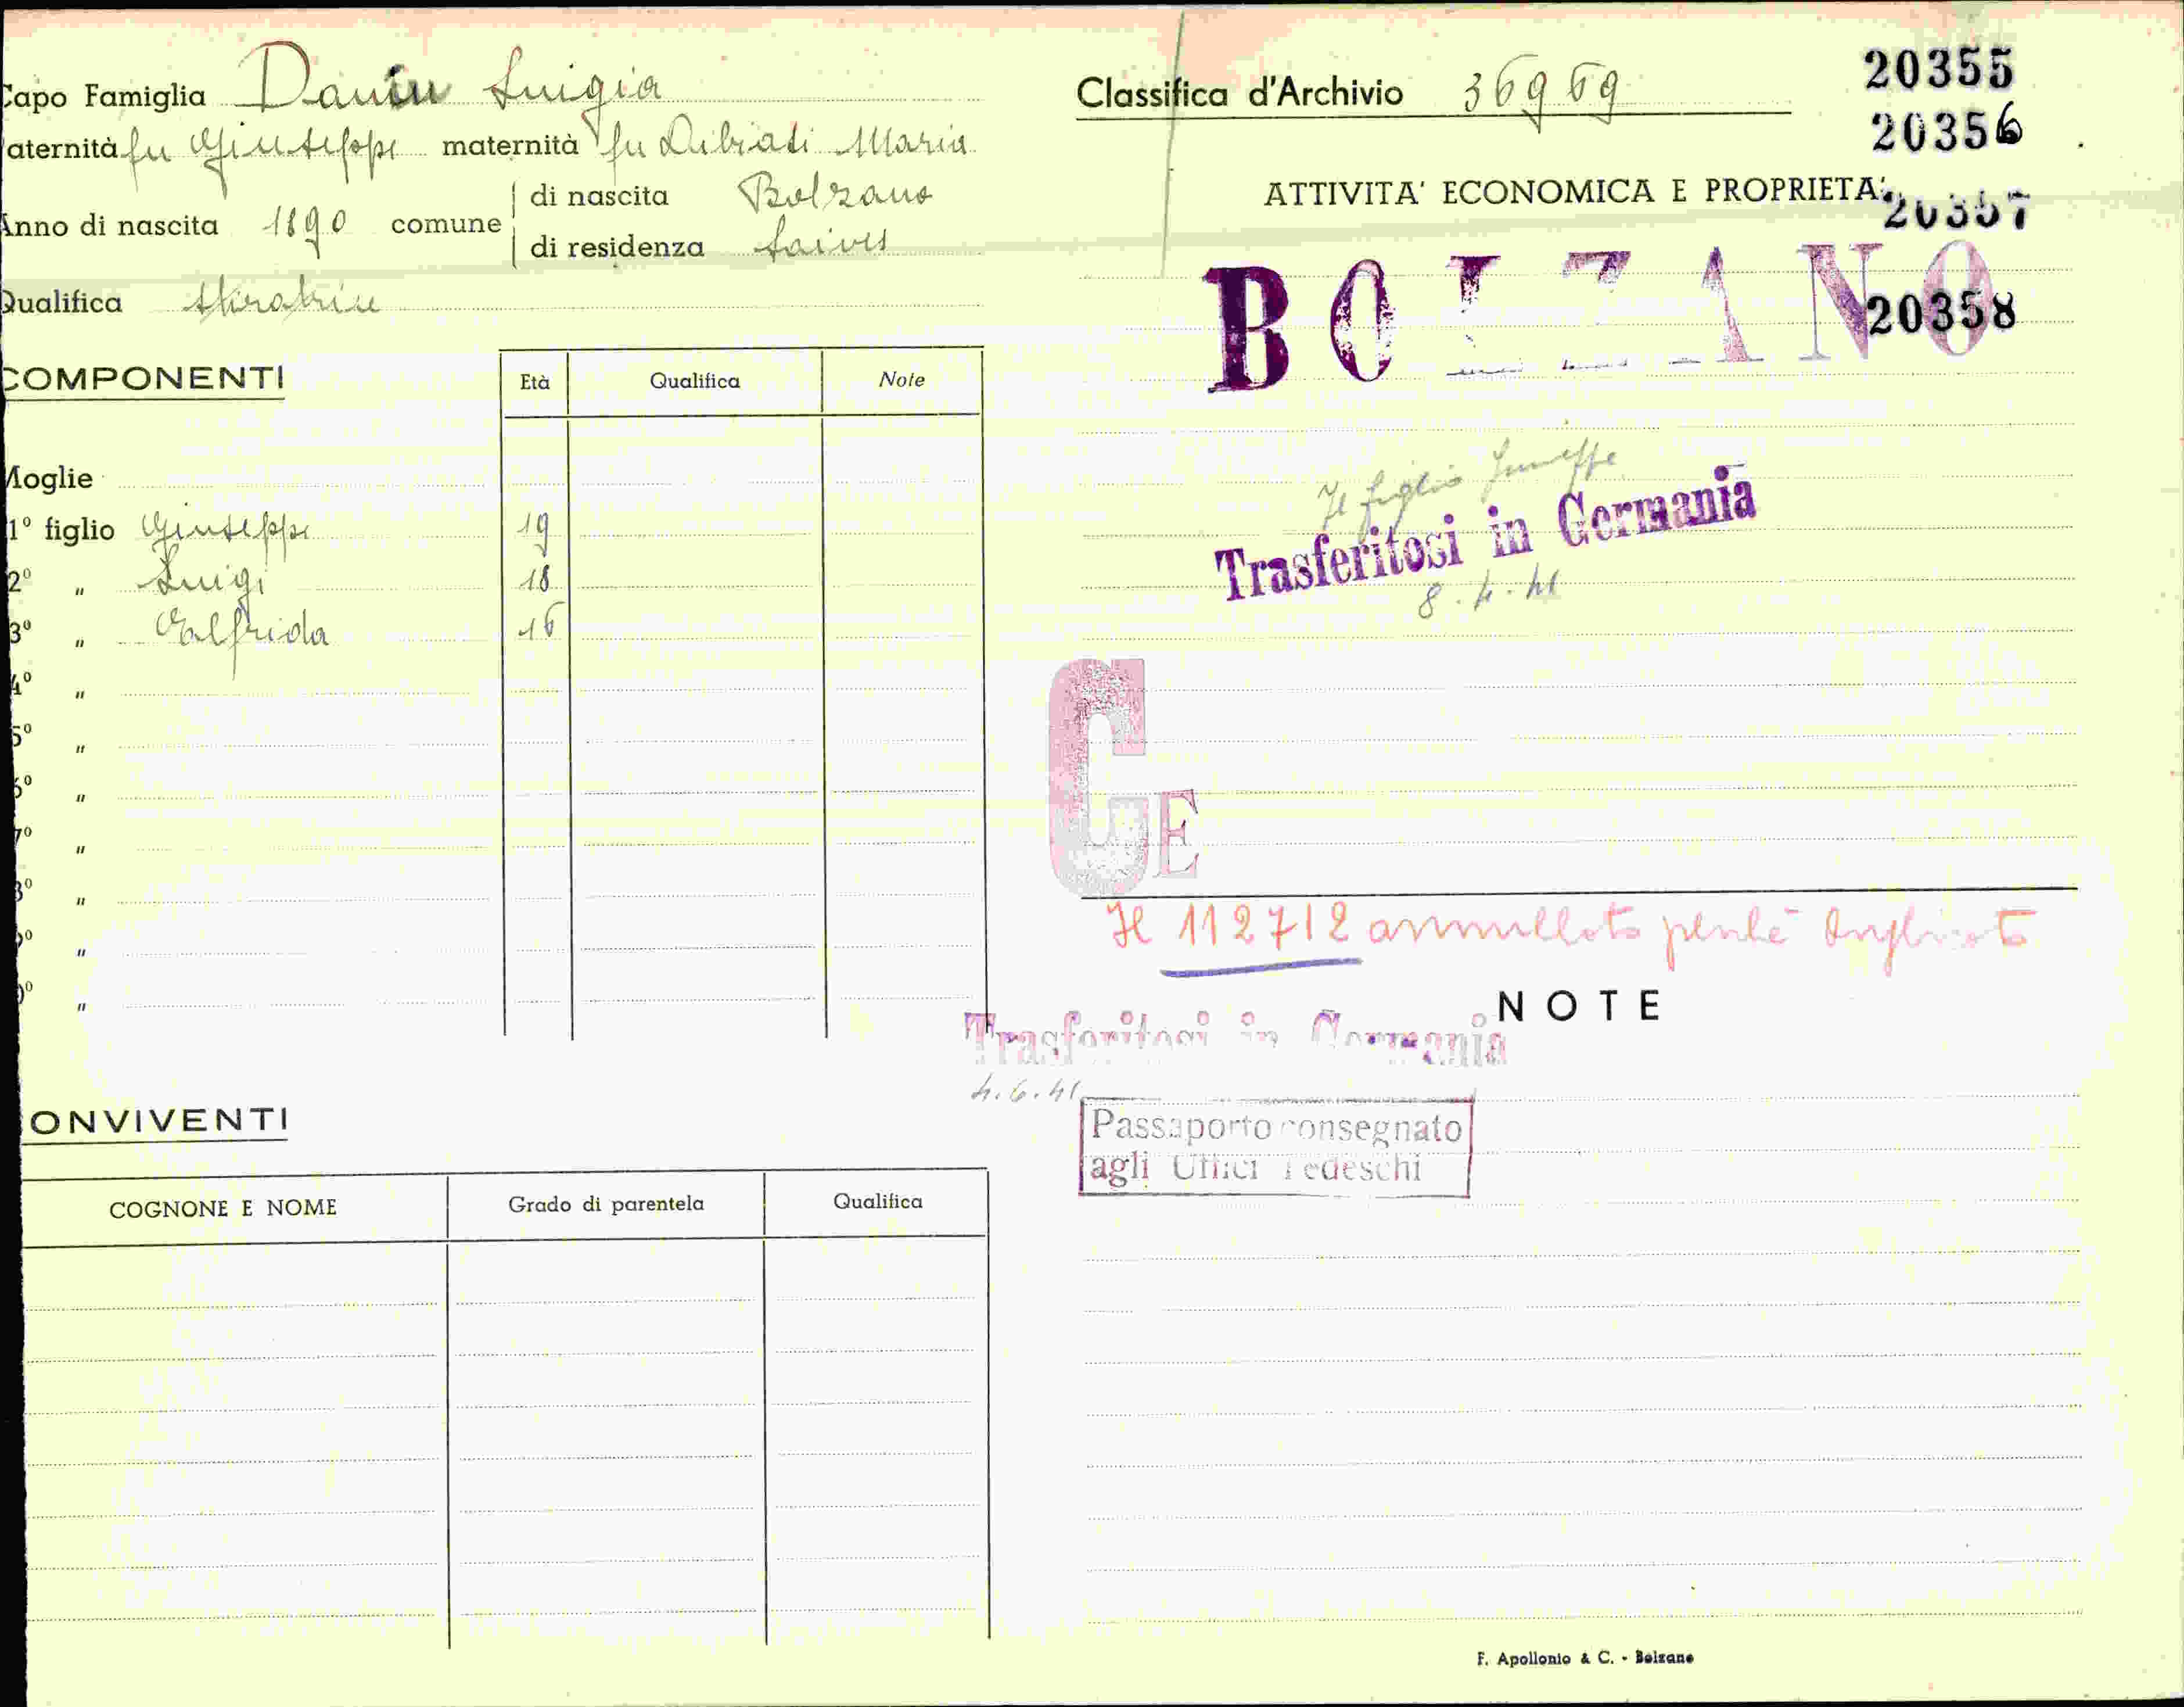 Capo Famiglia Luigia
aternità fu Giuseppe maternità fu Dibiasi Maria
Anno di nascita 1890 comune di nascita Bolzano
di residenza Laives
Qualifica Stiratrice
COMPONENTI
Età Qualifica Note
Moglie
1º figlio Giuseppe 19
2º " Luigi 18
3º " Elfrida 16
4º "
5º "
6º "
7º "
8º "
"
"
ONVIVENTI
COGNONE E NOME Grado di parentela Qualifica
Classifica d'Archivio 36969
20355
20356
20357
20358
ATTIVITA' ECONOMICA E PROPRIETA'
BOLZANO
Il figlio Giuseppe
Trasferitosi in Germania
8.4.41
G E
Il 112712 annullato perchè duplicato
NOTE
Trasferitosi in Germania
4.6.41
Passaporto consegnato
agli Uffici Tedeschi
F. Apollonio & C. - Bolzano